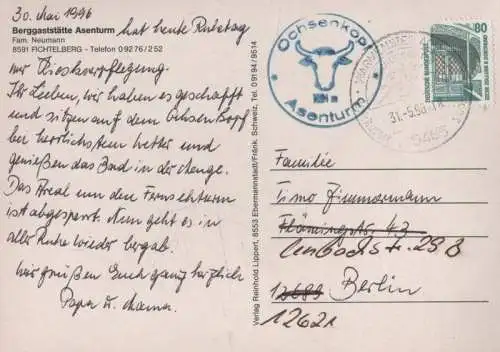 30. Mai 1996
Berggaststätte Asenturm hat heute Ruhetag
Fam. Neumann
8591 FICHTELBERG - Telefon 0 92 76 / 2 52
nur Kioskverpflegung
Ihr Lieben, wir haben es geschafft
und sitzen auf dem Ochsenkopf
bei herrlichstem Wetter und
genießen das Bad in der Menge.
Das Areal um den Fernsehturm
ist abgesperrt. Nun geht es in
aller Ruhe wieder bergab.
Wir grüßen Euch ganz herzlich
Papa u. Mama.
Verlag Reinhold Lippert, 8553 Ebermannstadt/Fränk. Schweiz, Tel. 0 91 94 / 96 14
Ochsenkopf
Asenturm
31.-5.96
80
DEUTSCHE BUNDESPOST
Familie
Timo Zimmermann
Flämingstr. 43
Lenbachstr. 29 B
12689 Berlin
12621